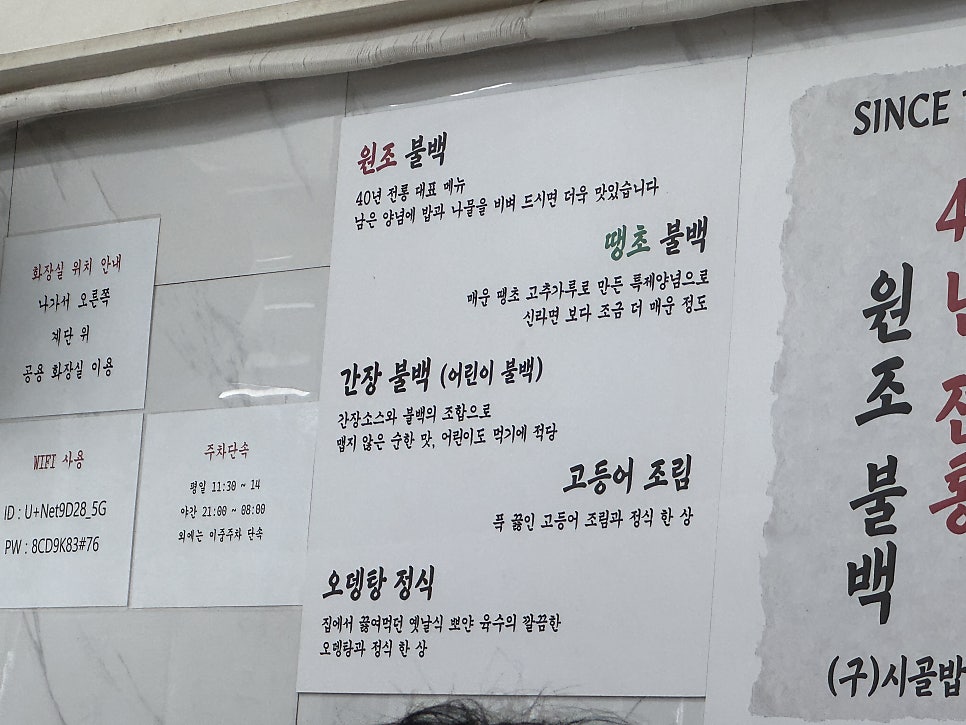 화장실 위치 안내
나가서 오른쪽
계단 위
공용 화장실 이용
WIFI 사용
ID : U+Net9D28_5G
PW : 8CD9K83#76
주차단속
평일 11:30 ~ 14
야간 21:00 ~ 08:00
외에는 이중주차 단속
원조 불백
40년 전통 대표 메뉴
남은 양념에 밥과 나물을 비벼 드시면 더욱 맛있습니다
땡초 불백
매운 땡초 고추가루로 만든 특제양념으로
신라면 보다 조금 더 매운 정도
간장 불백 (어린이 불백)
간장소스와 불백의 조합으로
맵지 않은 순한 맛, 어린이도 먹기에 적당
고등어 조림
푹 끓인 고등어 조림과 정식 한 상
오뎅탕 정식
집에서 끓여먹던 옛날식 뽀얀 육수의 깔끔한
오뎅탕과 정식 한 상
SINCE
4년 전통
원조 불백
(구)시골밥